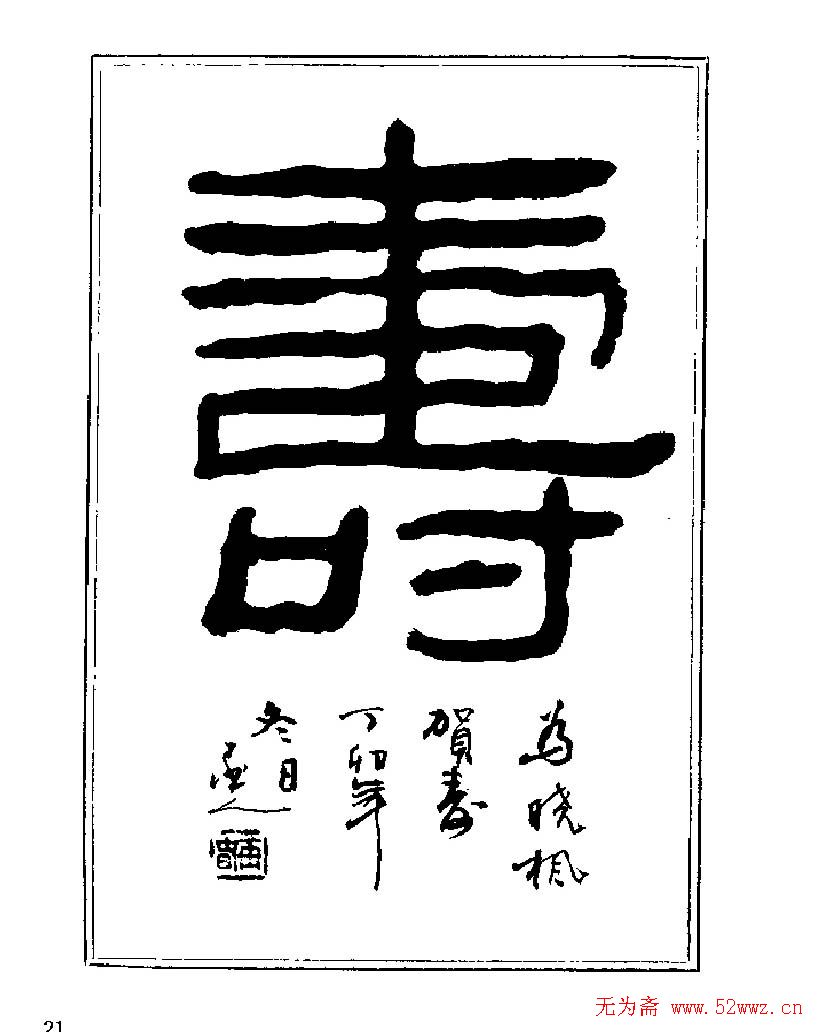 壽
为晓楓
賀寿
丁卯年
冬日
21
无为斋 www.52wwz.cn